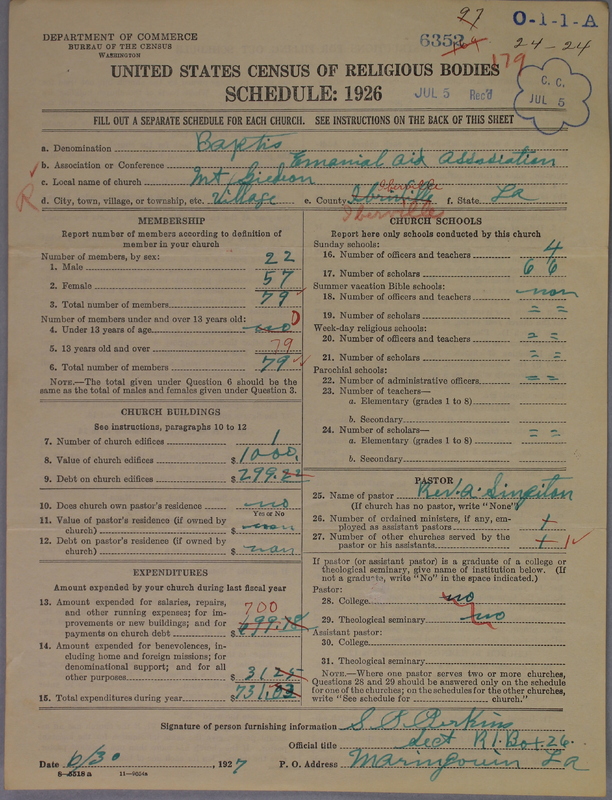 97
O-1-1-A
DEPARTMENT OF COMMERCE
BUREAU OF THE CENSUS
WASHINGTON
6352
24-24
179
UNITED STATES CENSUS OF RELIGIOUS BODIES
SCHEDULE: 1926
JUL 5 Rec'd
C. C.
JUL 5
FILL OUT A SEPARATE SCHEDULE FOR EACH CHURCH. SEE INSTRUCTIONS ON THE BACK OF THIS SHEET
a. Denomination Baptis
b. Association or Conference Emanial aid Association
c. Local name of church Mt Gideon
d. City, town, village, or township, etc. Village e. County Iberville f. State La
R Iberville
MEMBERSHIP
Report number of members according to definition of
member in your church
Number of members, by sex:
1. Male 22
2. Female 57
3. Total number of members 79
Number of members under and over 13 years old:
4. Under 13 years of age 0
5. 13 years old and over 79
6. Total number of members 79
NOTE.—The total given under Question 6 should be the
same as the total of males and females given under Question 3.
CHURCH BUILDINGS
See instructions, paragraphs 10 to 12
7. Number of church edifices 1
8. Value of church edifices $1000
9. Debt on church edifices $299.22
10. Does church own pastor's residence? no
Yes or No
11. Value of pastor's residence (if owned by
church) $ non
12. Debt on pastor's residence (if owned by
church) $ non
EXPENDITURES
Amount expended by your church during last fiscal year
13. Amount expended for salaries, repairs,
and other running expenses; for im-
provements or new buildings; and for
payments on church debt $ 699.78
700
14. Amount expended for benevolences, in-
cluding home and foreign missions; for
denominational support; and for all
other purposes $ 31.25
15. Total expenditures during year $731.03
CHURCH SCHOOLS
Report here only schools conducted by this church
Sunday schools:
16. Number of officers and teachers 4
17. Number of scholars 66
Summer vacation Bible schools:
18. Number of officers and teachers non
19. Number of scholars = =
Week-day religious schools:
20. Number of officers and teachers = =
21. Number of scholars = =
Parochial schools:
22. Number of administrative officers = =
23. Number of teachers—
a. Elementary (grades 1 to 8)
b. Secondary
24. Number of scholars—
a. Elementary (grades 1 to 8) = =
b. Secondary
PASTOR
25. Name of pastor Rev. A. Singiton
(If church has no pastor, write "None")
26. Number of ordained ministers, if any, em-
ployed as assistant pastors +
27. Number of other churches served by the
pastor or his assistants + 1
If pastor (or assistant pastor) is a graduate of a college or
theological seminary, give name of institution below. (If
not a graduate, write "No" in the space indicated.)
Pastor:
28. College no
29. Theological seminary no
Assistant pastor:
30. College
31. Theological seminary
NOTE.—Where one pastor serves two or more churches,
Questions 28 and 29 should be answered only on the schedule
for one of the churches; on the schedules for the other churches,
write "See schedule for church."
Signature of person furnishing information S. P. Perkins
Official title Sect R1. Box. 26
Date 6/30, 1927 P. O. Address Maringouin La
8-5518a 11-9054a